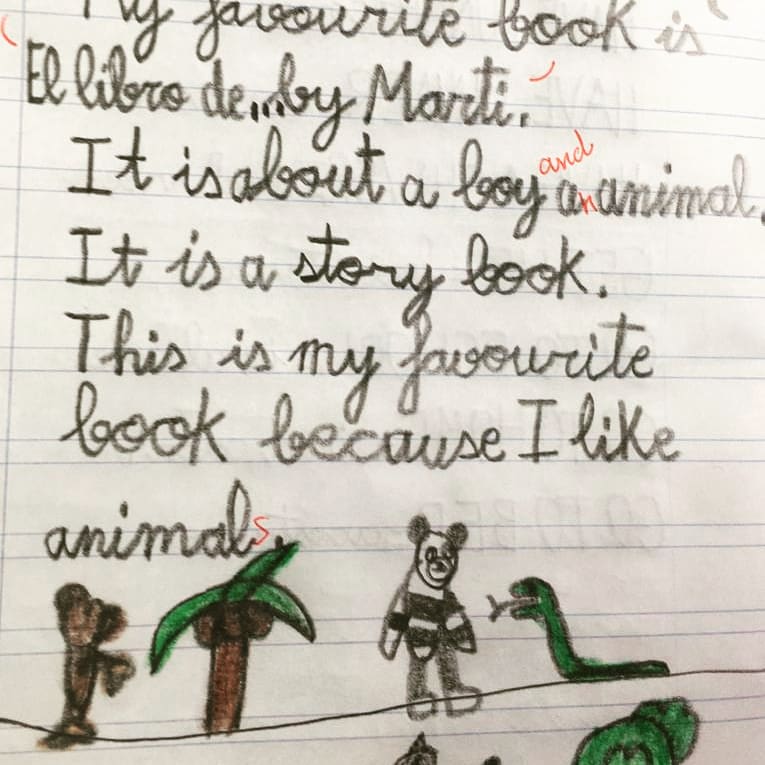 My favourite book is
El libro de...by Marti.
and
It is about a boy an animal.
It is a story book.
This is my favourite
book because I like
animals.